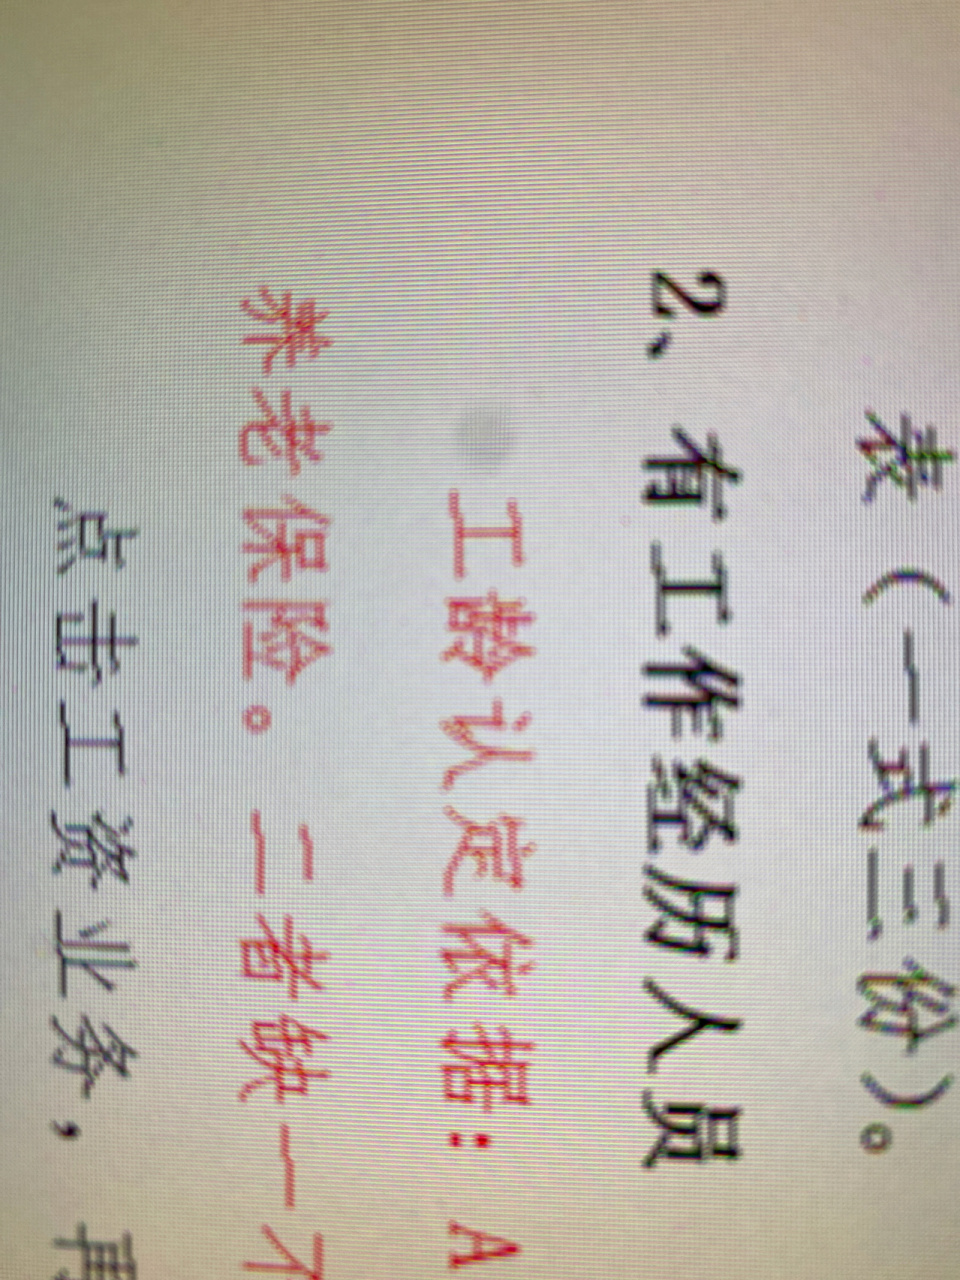 表（一式三份）。
2、有工作经历人员
工龄认定依据：A
养老保险。二者缺一不
点击工资业务，再